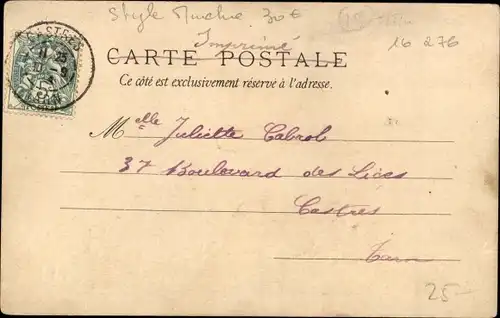 Style Mucha 30€
Imprimé
16 276
CASTRES
CARTE POSTALE
Ce côté est exclusivement réservé à l'adresse.
Melle Juliette Cabrol
37 Boulevard des Lices
Castres
Tarn
25-